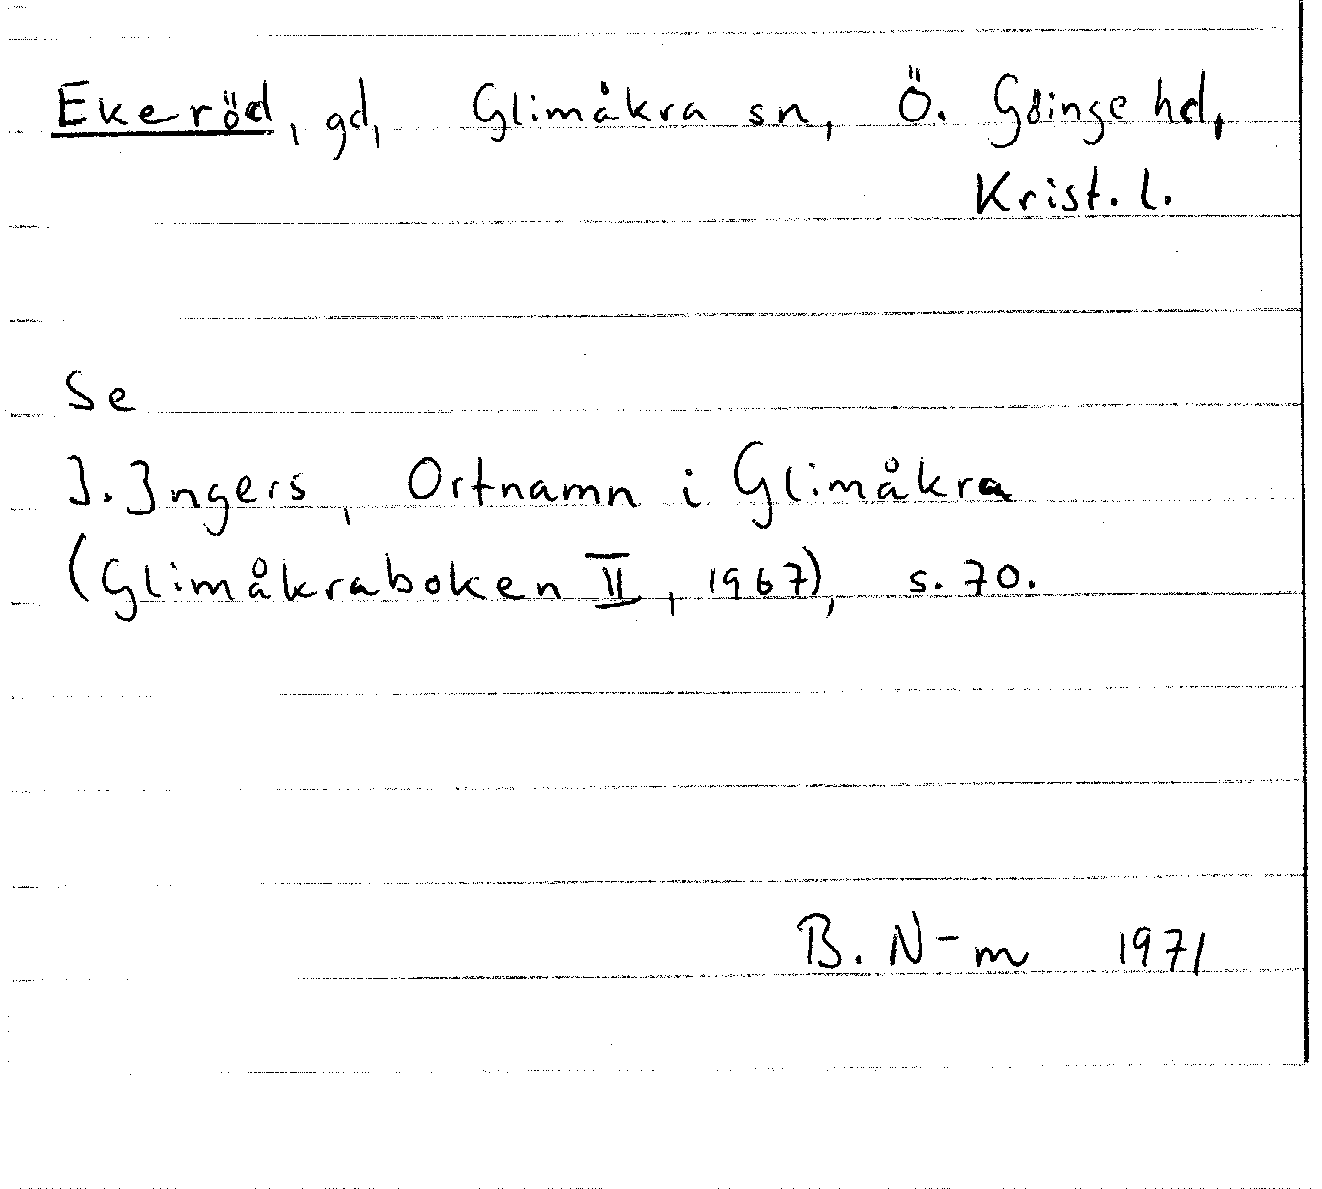 Ekeröd, gd, Glimåkra sn, Ö. Göinge hd,
Krist. l.
Se
I. Ingers, Ortnamn i Glimåkra
(Glimåkraboken II, 1967), s. 70.
B. N-m 1971